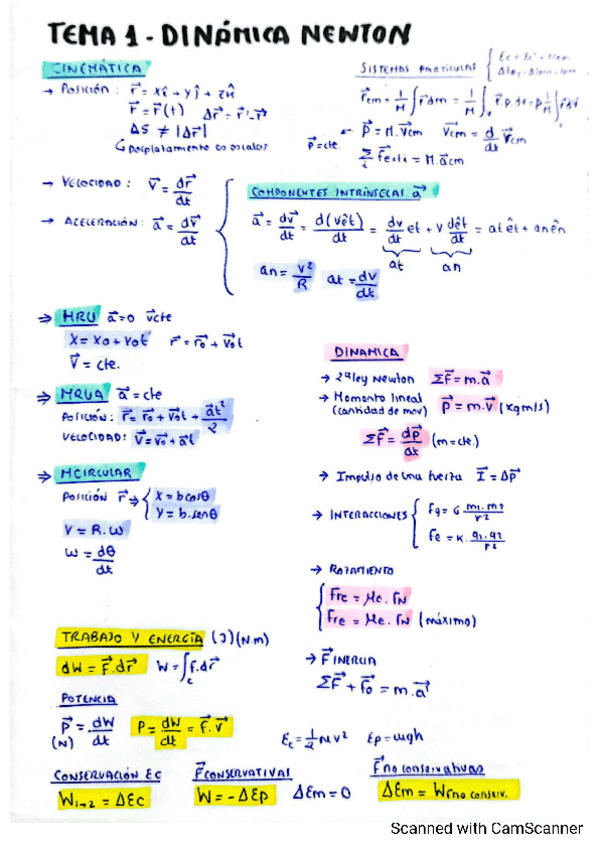 TEMA 1 - DINÁMICA NEWTON
CINEMÁTICA
→ Posición: r⃗ = xî + yĵ + zk̂
r⃗ = r⃗(t) Δr⃗ = r⃗' - r⃗
ΔS ≠ |Δr⃗|
↳ Desplazamiento es escalar
SISTEMAS PARTÍCULAS
r⃗cm = 1/M ∫ r⃗ dm = 1/M ∫ r⃗.ρ.dv = ρ 1/M ∫ r⃗dv
p⃗=cte. ← P⃗ = M.V⃗cm V⃗cm = d/dt r⃗cm
Σ F⃗ext = M.a⃗cm
→ VELOCIDAD: V⃗ = dr⃗/dt
→ ACELERACIÓN: a⃗ = dv⃗/dt
COMPONENTES INTRÍNSECAS a⃗
a⃗ = dv⃗/dt = d(vêt)/dt = dv/dt et + v dêt/dt = at êt + an ên
at an
an = v²/R at = dv/dt
⇒ MRU a⃗=0 v⃗cte
X = X0 + V0t r⃗ = r⃗0 + v⃗0t
V⃗ = cte.
⇒ MRUA a⃗ = cte
Posición: r⃗ = r⃗0 + v⃗0t + a⃗t²/2
VELOCIDAD: v⃗ = v⃗0 + a⃗t
⇒ MCIRCULAR
POSICIÓN r⃗ ⇒ { X = b cosθ
Y = b.senθ
V = R.ω
ω = dθ/dt
DINAMICA
→ 2ª ley Newton ΣF⃗ = m.a⃗
→ Momento lineal (cantidad de mov) p⃗ = m.v⃗ (kg m/s)
ΣF⃗ = dp⃗/dt (m=cte.)
→ Impulso de una fuerza I⃗ = Δp⃗
→ INTERACCIONES { Fg = G m1.m2/r²
Fe = K. q1.q2/r²
→ ROZAMIENTO
{ Frc = μc. FN
Fre = μe. FN (máximo)
→ F⃗ INERCIA
ΣF⃗ + F⃗0 = m.a⃗'
TRABAJO Y ENERGÍA (J)(N m)
dW = F⃗.dr⃗ W = ∫c F.dr⃗
POTENCIA
P⃗ = dW/dt P = dW/dt = F⃗.v⃗
Ec = 1/2 M v² Ep = mgh
CONSERVACIÓN EC
W1→2 = ΔEc
F⃗ CONSERVATIVAS
W = -ΔEp ΔEm = 0
F⃗ no conservativas
ΔEm = WFno conserv.
Scanned with CamScanner